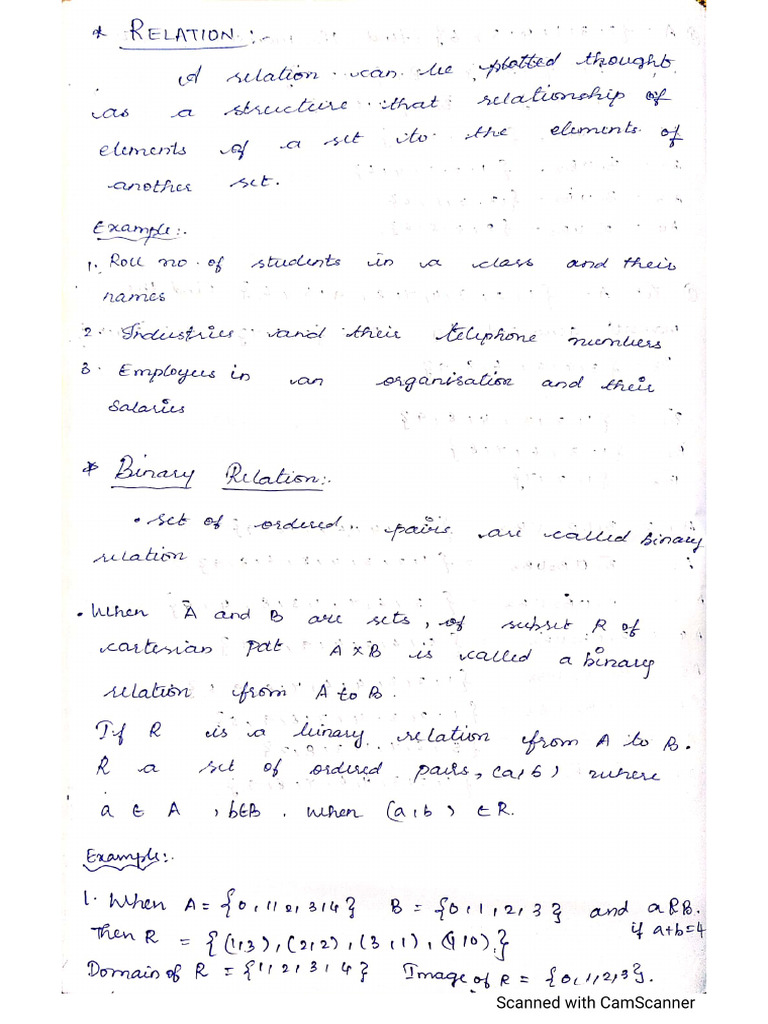 * RELATION :-
A relation can be plotted thought
as a structure that relationship of
elements of a set to the elements of
another set.
Example:-
1. Roll no. of students in a class and their
names
2. Industries and their telephone numbers
3. Employees in an organisation and their
Salaries
* Binary Relation:-
• set of ordered pairs are called binary
relation
• When A and B are sets, of subset R of
cartesian pdt A×B is called a binary
relation from A to B.
If R is a binary relation from A to B.
R a set of ordered pairs, (a,b) where
a ∈ A, b∈B. When (a,b) ∈ R.
Example:-
1. When A = {0,1,2,3,4} B = {0,1,2,3} and aRB.
if a+b=4
Then R = {(1,3), (2,2), (3,1), (4,0).}
Domain of R = {1,2,3,4} Image of R = {0,1,2,3}.
Scanned with CamScanner